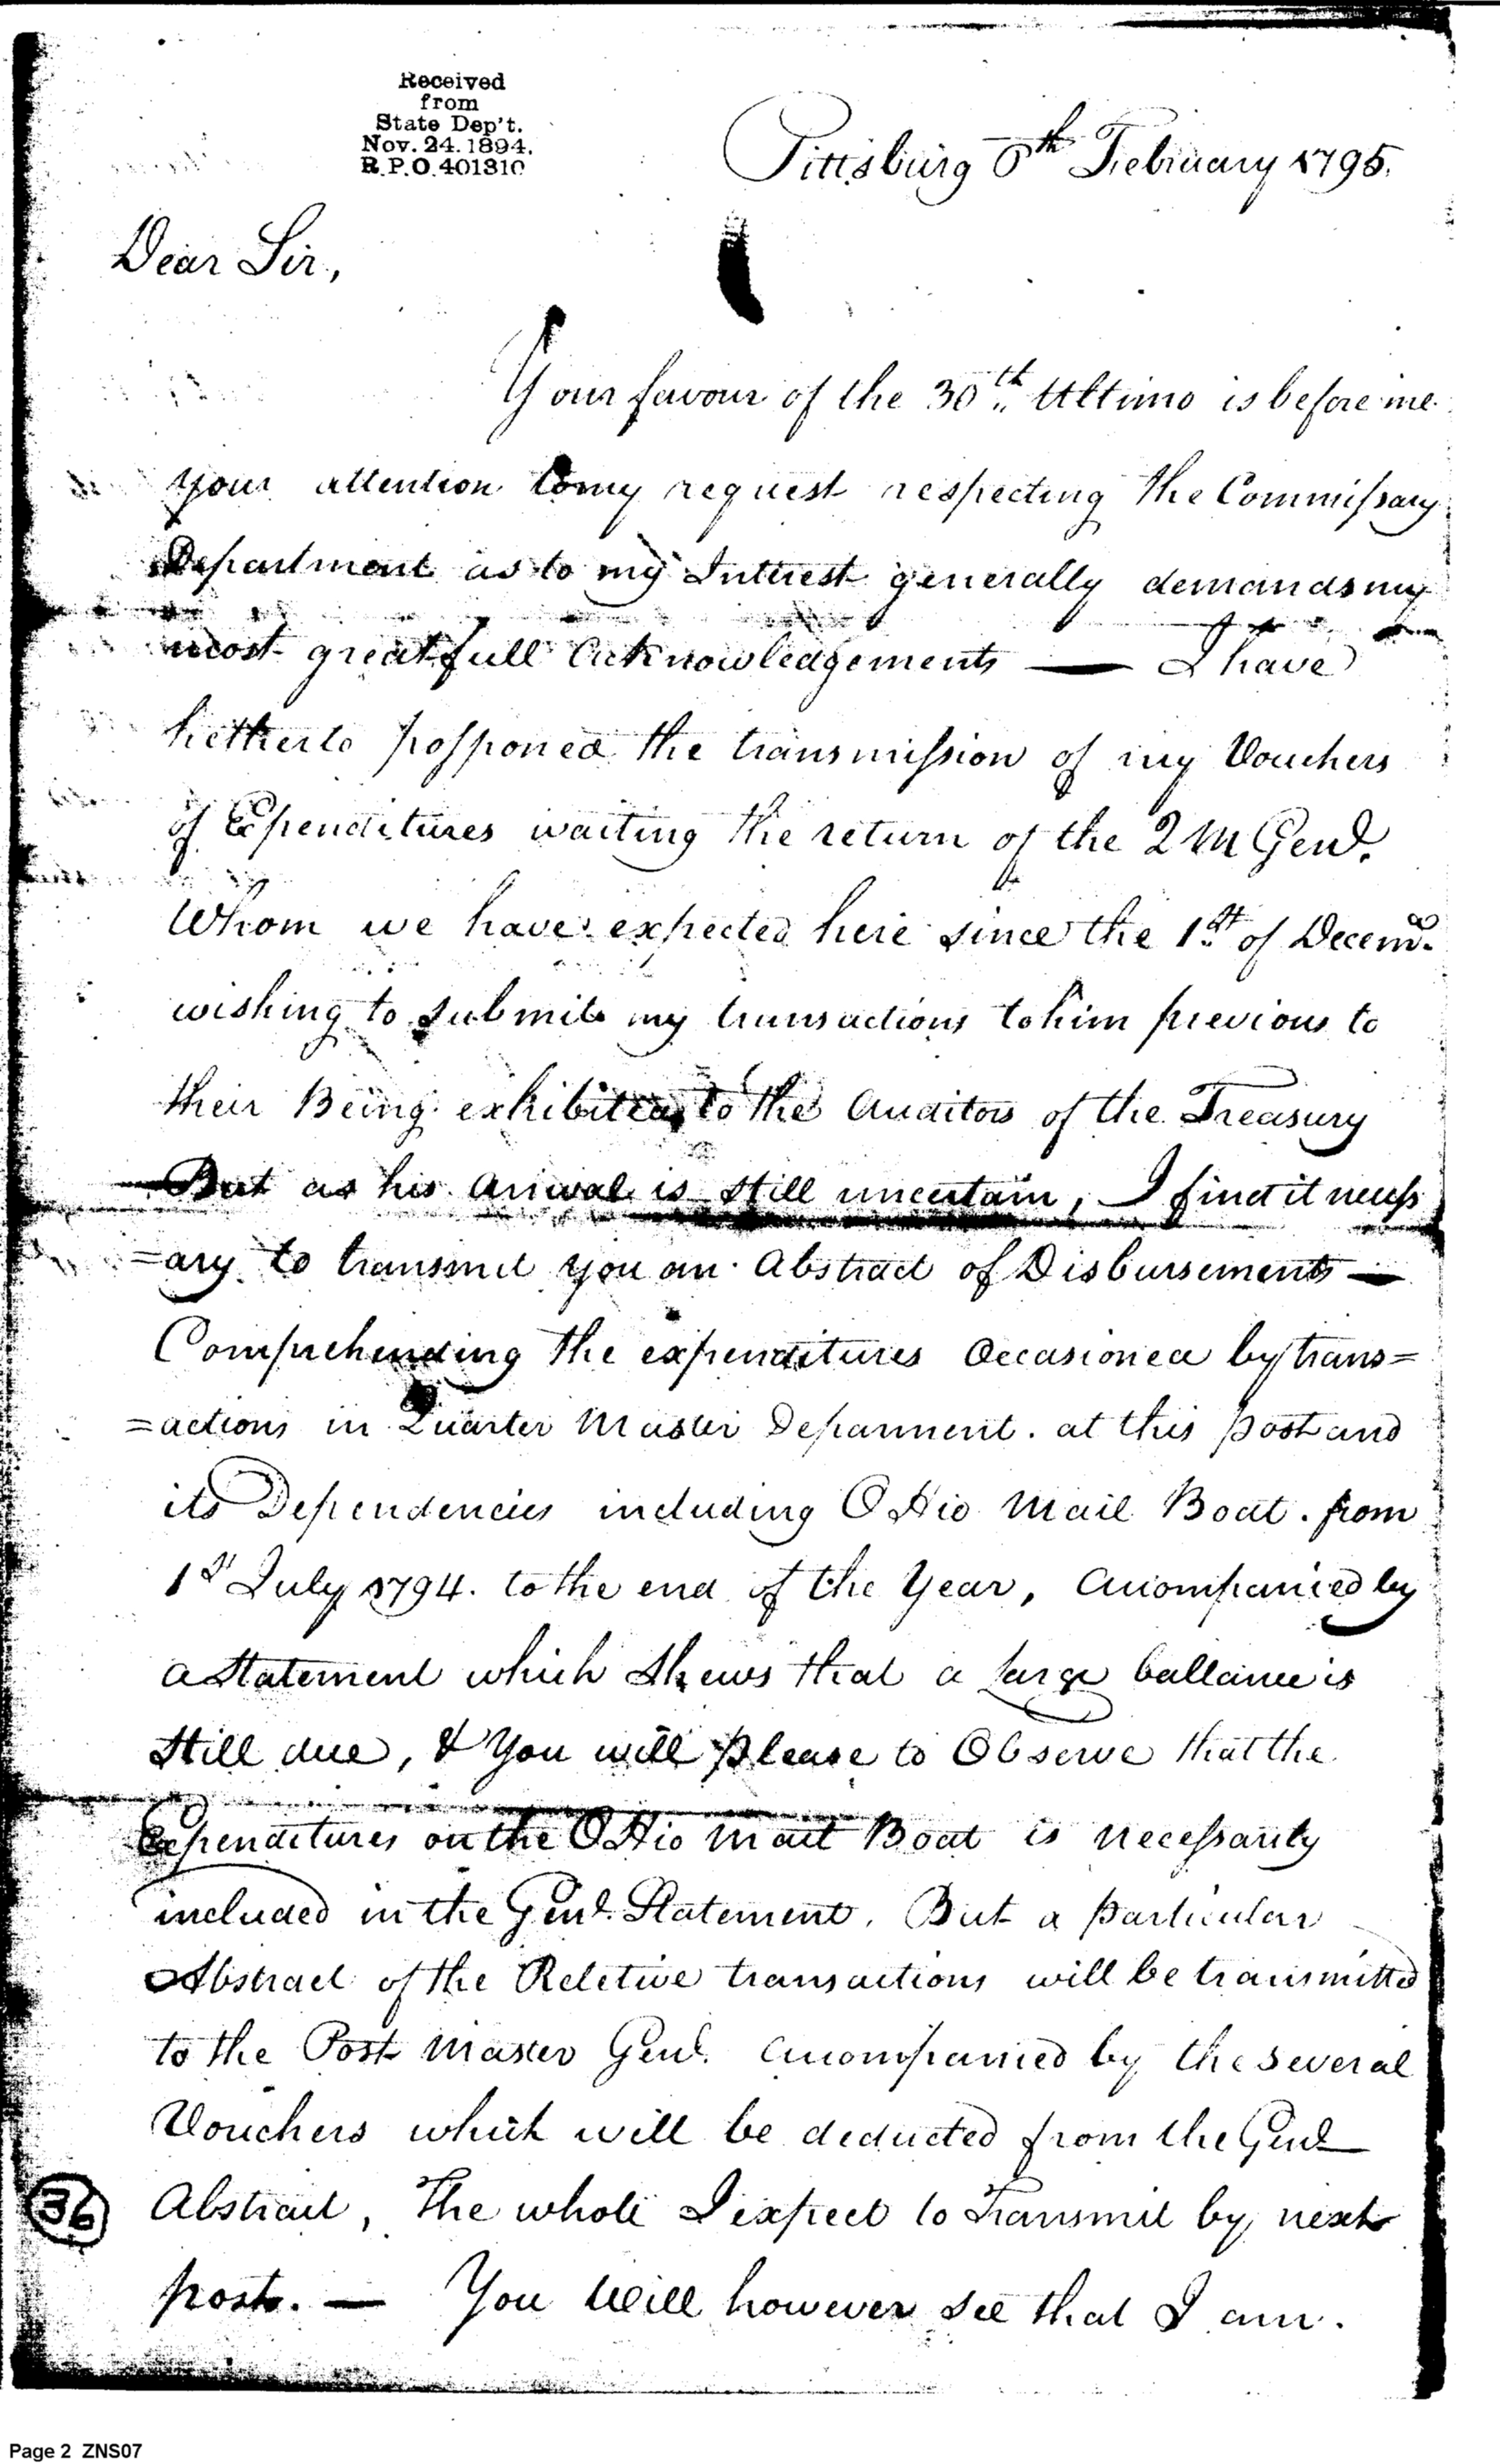 Received
from
State Dep't.
Nov. 24. 1894.
R.P.O. 401310
Pittsburg 6th February 1795.
Dear Sir,
Your favour of the 30th Ultimo is before me
your attention to my request respecting the Commissary
Department as to my Interest generally demands my
most greatfull Acknowledgements — I have
hetherto posponed the transmission of my Vouchers
of Expenditures waiting the return of the Q M Genl.
Whom we have expected here since the 1st of Decem.
wishing to submit my transactions to him previous to
their Being exhibited to the Auditors of the Treasury
But as his arival is still uncertain, I find it necess
=ary to transmit you an Abstract of Disbursements —
Comprehending the expenditures Occasioned by trans=
=actions in Quarter Master Deparment. at this post and
its Dependencies including OHio Mail Boat. from
1st July 1794. to the end of the Year, Accompanied by
a Statement which Shews that a large ballance is
Still due, & You will please to Observe that the
Expenditures on the OHio Mail Boat is necessarily
included in the Genl. Statement. But a particular
Abstract of the Reletive transactions will be transmitted
to the Post Master Genl. accompanied by the several
Vouchers which will be deducted from the Genl
Abstract, The whole I expect to Transmit by next
post. — You Will however see that I am.
36
Page 2 ZNS07